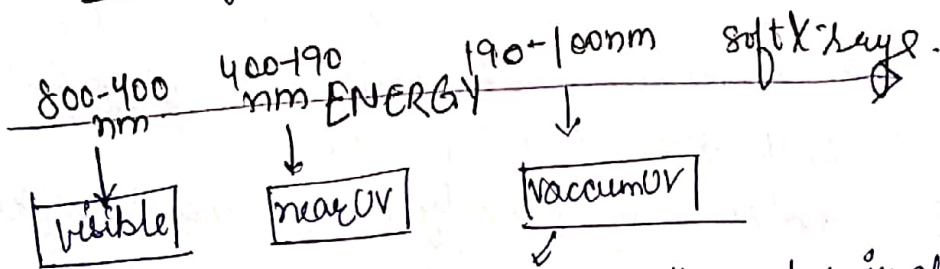 800-400 nm 400-190 nm ENERGY 190-100nm soft X-rays.
visible near UV vaccum UV